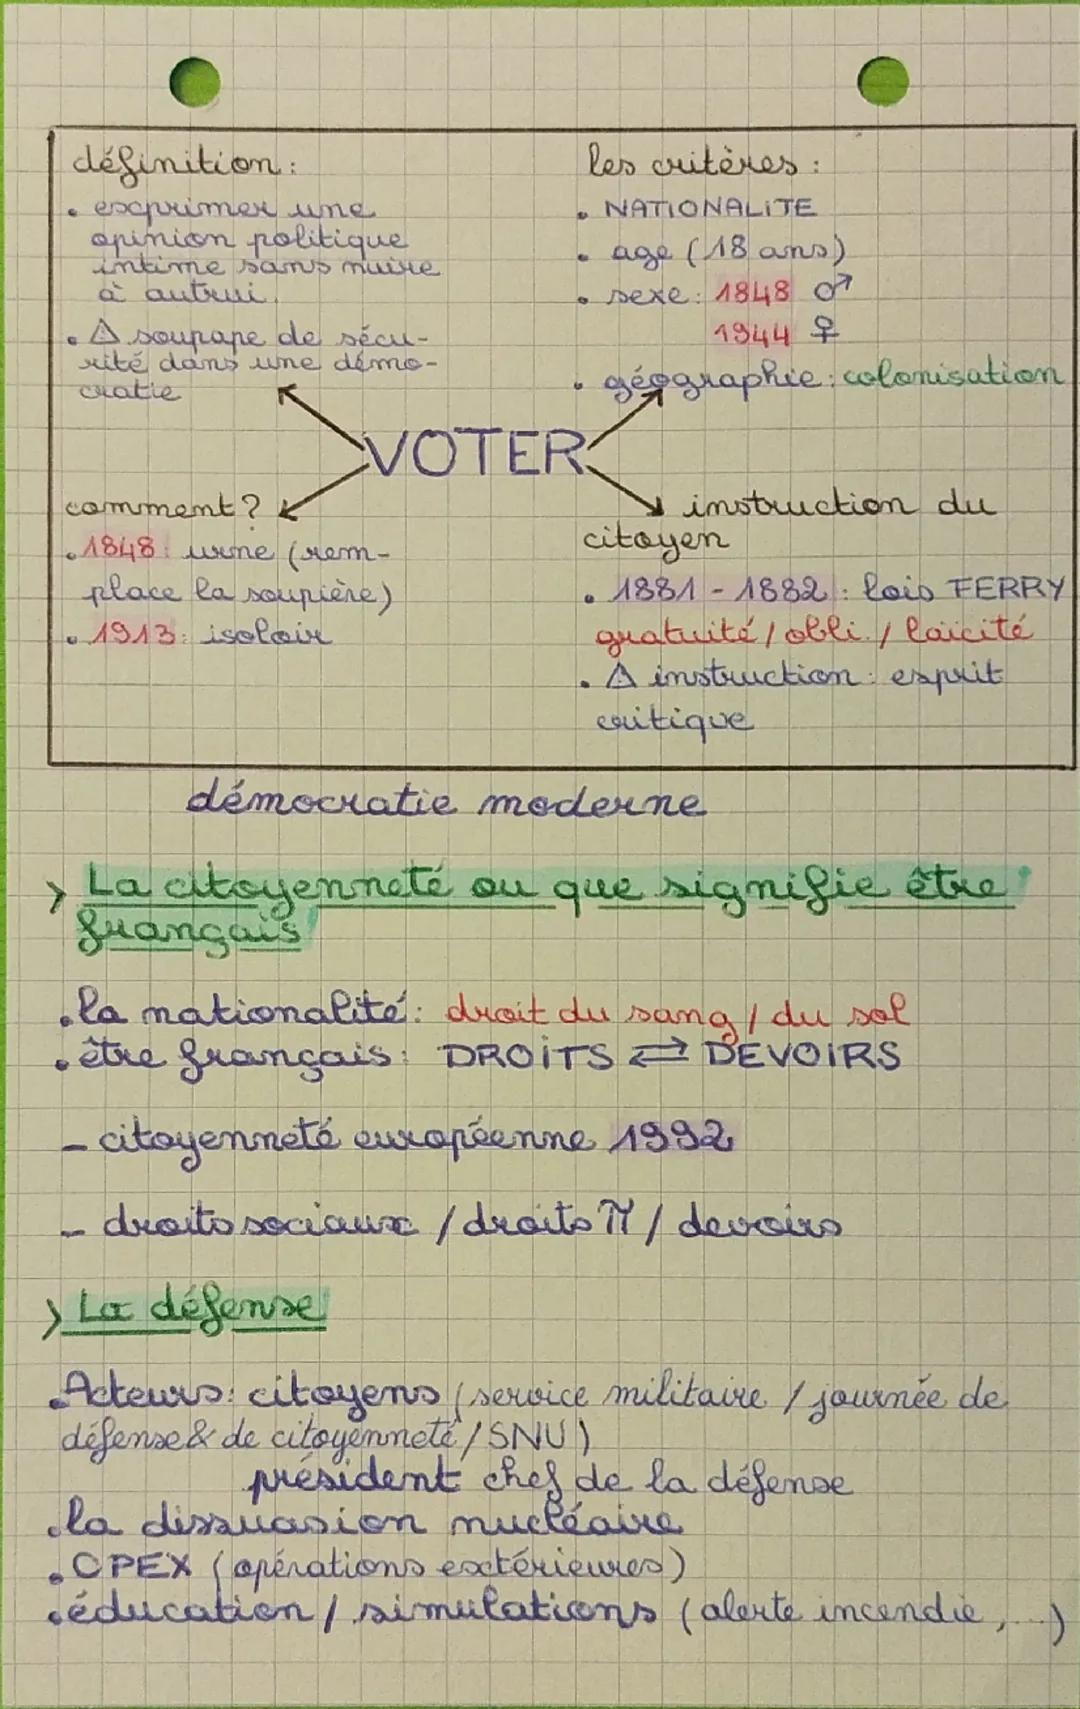 définition :
• exprimer une
opinion politique
intime sans nuire
à autrui.
• ⚠ soupape de sécu-
rité dans une démo-
cratie
les critères :
• NATIONALITE
• age (18 ans)
• sexe : 1848 ♂
1944 ♀
• géographie : colonisation
VOTER
comment ?
• 1848 : urne (rem-
place la soupière)
• 1913 : isoloir
instruction du
citoyen
• 1881 - 1882 : lois FERRY
gratuité / obli. / laïcité
• ⚠ instruction : esprit
critique
démocratie moderne
> La citoyenneté ou que signifie être
français
• la nationalité : droit du sang / du sol
• être français : DROITS ⇄ DEVOIRS
- citoyenneté européenne 1992
- droits sociaux / droits π / devoirs
> La défense
• Acteurs : citoyens (service militaire / journée de
défense & de citoyenneté / SNU)
président chef de la défense
• la dissuasion nucléaire
• OPEX (opérations extérieures)
• éducation / simulations (alerte incendie, ...)